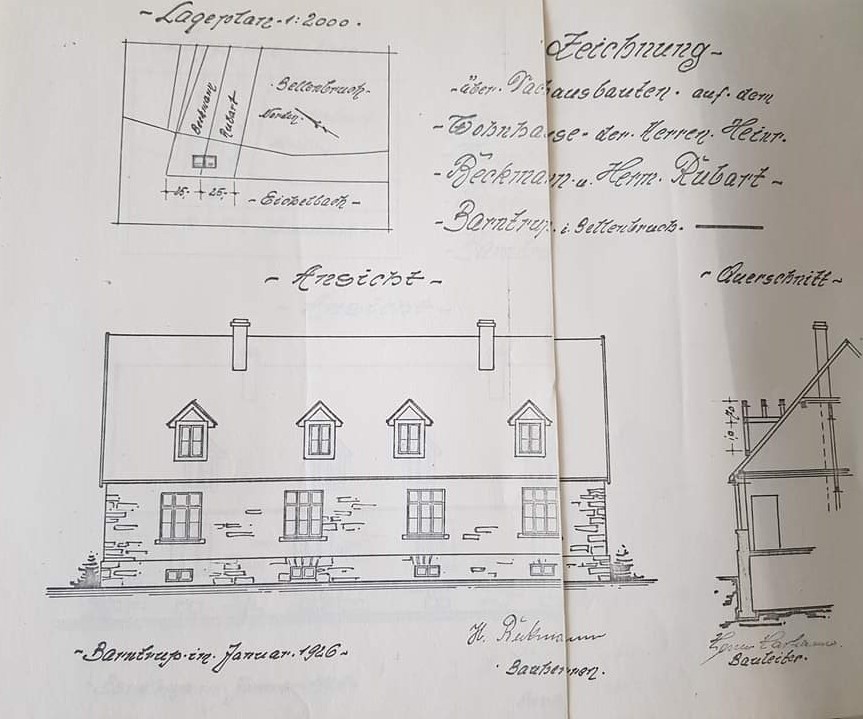 - Lageplan - 1:2000 -
Beckmann
Rubart
- Bellenbruch -
Norden -
25. 25.
- Eichelbach -
Zeichnung -
- über Dachausbauten - auf dem
- Wohnhause - der Herren Heinr.
- Beckmann u. Herm. Rubart -
- Barntrup i. Bellenbruch -
- Ansicht -
- Querschnitt -
- Barntrup im Januar 1926 -
H.
Bauherren.
Bauleiter.